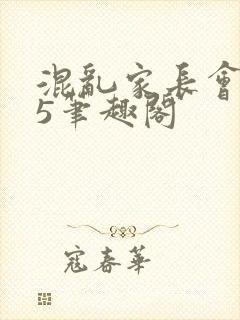 混亂家長會
5筆趣閣
寇春華